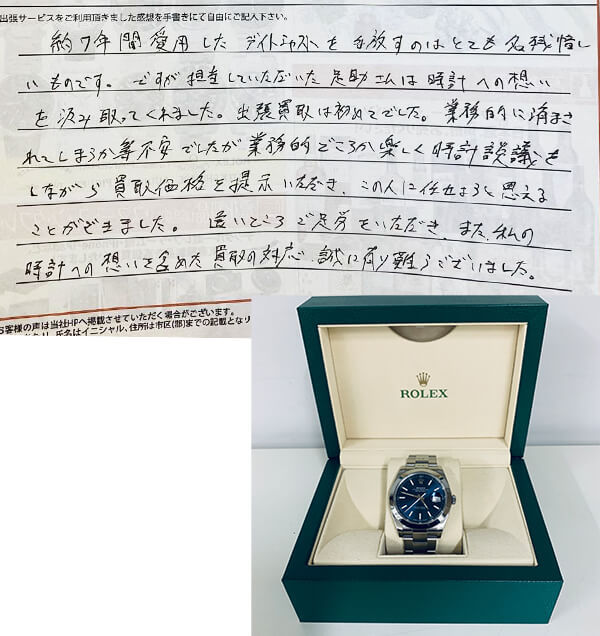 出張サービスをご利用頂きました感想を手書きにて自由にご記入下さい。
約7年間愛用したデイトジャストを手放すのはとても名残惜し
いものです。ですが担当していただいた足助さんは時計への想い
を汲み取ってくれました。出張買取は初めてでした。業務的に済まさ
れてしまうか等不安でしたが業務的どころか楽しく時計談議を
しながら買取価格を提示いただき、この人に任せようと思える
ことができました。遠いところご足労をいただき、また、私の
時計への想いを含めた買取の対応、誠に有り難うございました。
お客様の声は当社HPへ掲載させていただく場合がございます。
氏名はイニシャル、住所は市区(郡)までの記載となり
ROLEX
ROLEX